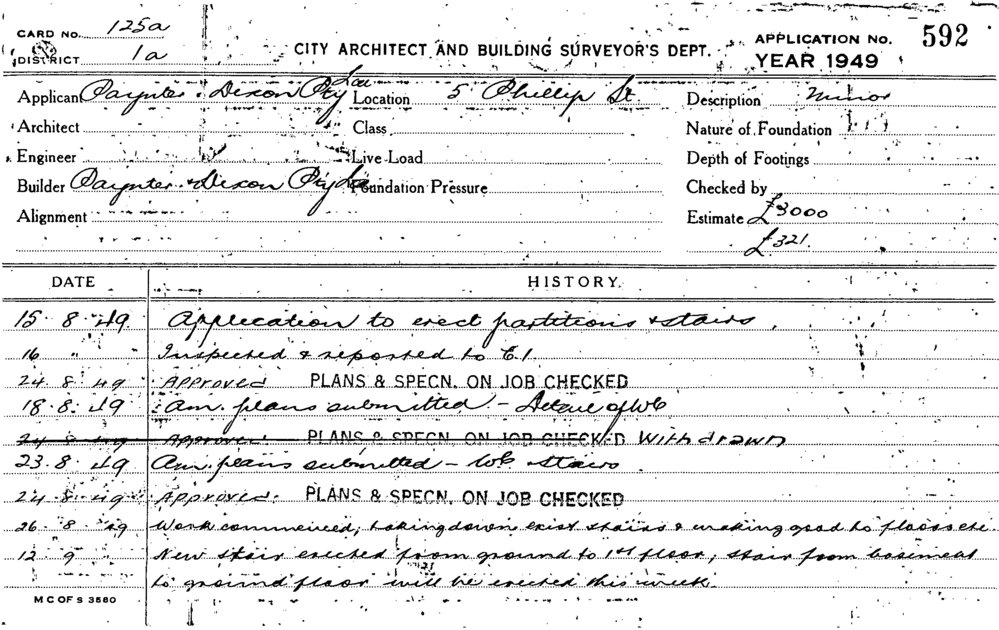 CARD No. 125a
DISTRICT 1a
CITY ARCHITECT AND BUILDING SURVEYOR'S DEPT.
APPLICATION No. 592
YEAR 1949
Applicant Paynter & Dixon Pty Ltd Location 5 Phillip St Description Minor
Architect Class Nature of Foundation
Engineer Live Load Depth of Footings
Builder Paynter & Dixon Pty Ltd Foundation Pressure Checked by
Alignment Estimate £3000
£321.
DATE HISTORY.
15. 8. 49. Application to erect partitions & stairs.
16 " Inspected & reported to E.I.
24. 8. 49 Approved PLANS & SPECN. ON JOB CHECKED
18. 8. 49 Am. plans submitted - Detail of WC
24 8 49 Approved PLANS & SPECN. ON JOB CHECKED Withdrawn
23. 8. 49 Am. plans submitted - WC & stairs
24. 8. 49 Approved. PLANS & SPECN. ON JOB CHECKED
26. 8. 49 Work commenced, taking down exist stairs & making good to floors etc
12 9 New stair erected from ground to 1st floor, stair from basement
to ground floor will be erected this week.
M C OF S 3580